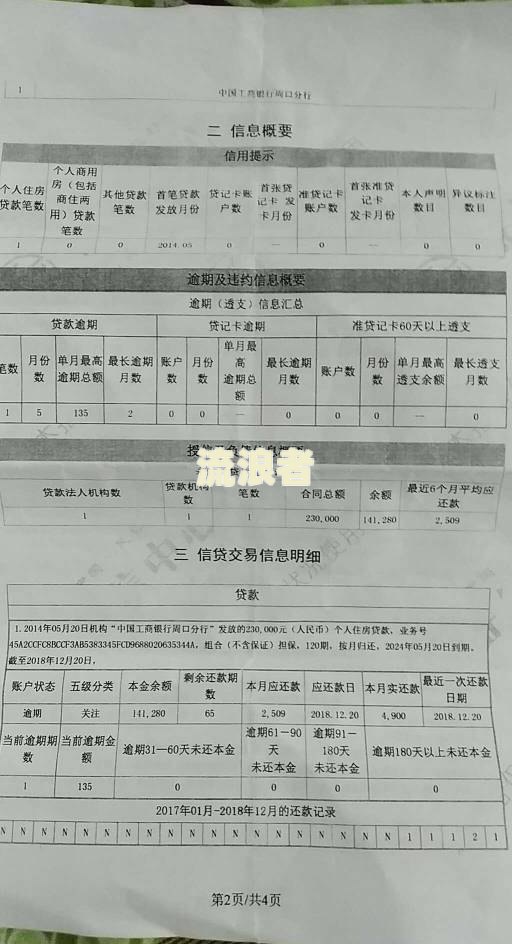 1 中国工商银行周口分行
二 信息概要
信用提示
个人住房贷款笔数 个人商用房（包括商住两用）贷款笔数 其他贷款笔数 首笔贷款发放月份 贷记卡账户数 首张贷记卡 发卡月份 准贷记卡账户数 首张准贷记卡 发卡月份 本人声明数目 异议标注数目
1 0 0 2014.05 0 — 0 — 0 0
逾期及违约信息概要
逾期（透支）信息汇总
贷款逾期 贷记卡逾期 准贷记卡60天以上透支
笔数 月份数 单月最高逾期总额 最长逾期月数 账户数 月份数 单月最高逾期总额 最长逾期月数 账户数 月份数 单月最高透支余额 最长透支月数
1 5 135 2 0 0 — 0 0 0 — 0
流浪者
贷款法人机构数 贷款机构数 笔数 合同总额 余额 最近6个月平均应还款
1 1 1 230,000 141,280 2,509
三 信贷交易信息明细
贷款
1.2014年05月20日机构“中国工商银行周口分行”发放的230,000元（人民币）个人住房贷款，业务号
45A2CCFC8BCCF3AB5383345FCD9688020635344A，组合（不含保证）担保，120期，按月归还，2024年05月20日到期。
截至2018年12月20日，
账户状态 五级分类 本金余额 剩余还款期数 本月应还款 应还款日 本月实还款 最近一次还款日期
逾期 关注 141,280 65 2,509 2018.12.20 4,900 2018.12.20
当前逾期期数 当前逾期金额 逾期31—60天未还本金 逾期61－90天未还本金 逾期91－180天未还本金 逾期180天以上未还本金
1 135 0 0 0 0
2017年01月-2018年12月的还款记录
N N N N N N N N N N N N N N N N N N N N 1 1 2 1
第2页/共4页